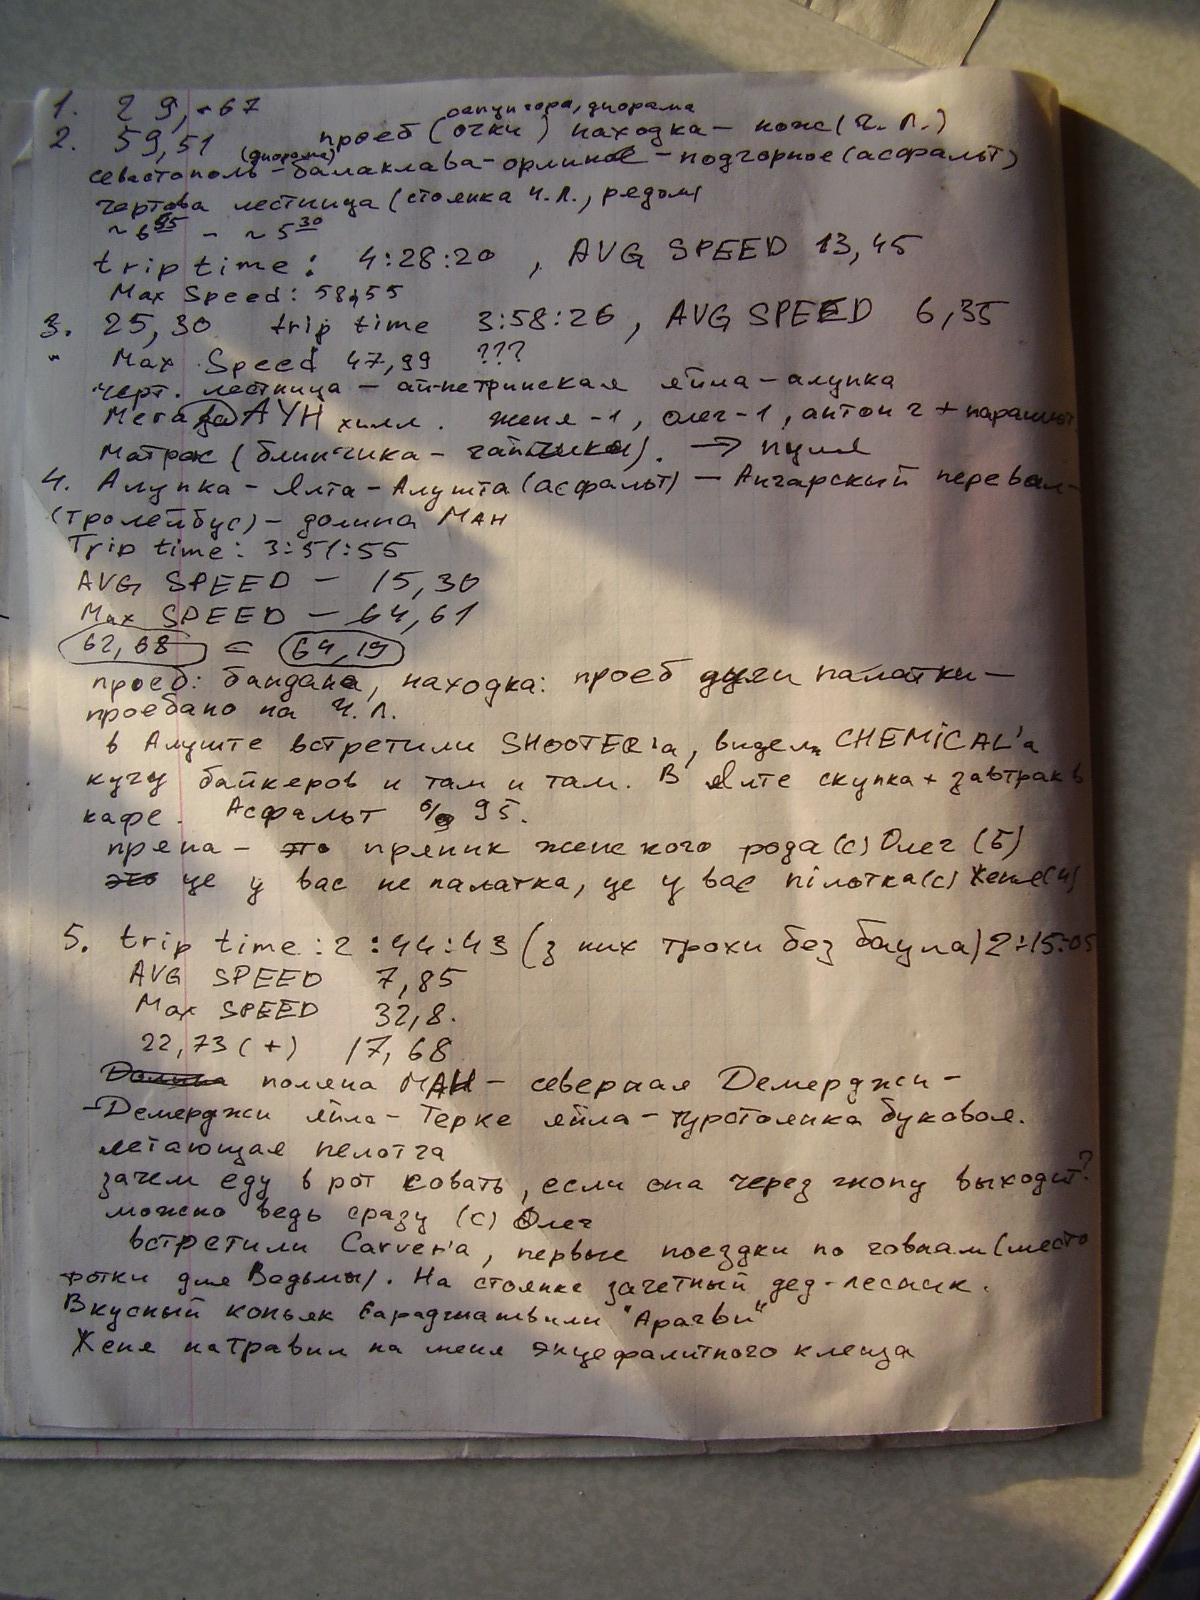 1. 29,-67
сапун гора, диорама
2. 59,51 проеб (очки) находка - нож (Ч.Л.)
(диорама)
севастополь - балаклава - орлиное - подгорное (асфальт)
чертова лестница (стоянка Ч.Л., рядом)
~ 5³⁰
trip time: 4:28:20 , AVG SPEED 13,45
Max Speed: 58,55
3. 25,30 trip time 3:58:26, AVG SPEED 6,35
Max Speed 47,99 ???
черт. лестница - ай-петринская яйла - алупка
Мега ДАУН хилл. женя - 1, олег - 1, антон 2 + парашют
матрас (блинчика - ). → пуля
4. Алупка - Ялта - Алушта (асфальт) - Ангарский перевал -
(тролейбус) - долина Ман
Trip time: 3:51:55
AVG SPEED - 15,30
Max SPEED - 64,61
62,68 = 64,19
проеб: бандана, находка: проеб дуги палатки -
проебано на Ч.Л.
в Алуште встретили SHOOTER'а, видели CHEMICAL'а
кучу байкеров и там и там. В Ялте скупка + завтрак в
кафе. Асфальт 95.
пряпа - это пряник женского рода (с) Олег (Б)
це у вас не палатка, це у вас пілотка (с) Женя (Ч)
5. trip time: 2:44:43 (з них трохи без баула) 2:15:05
AVG SPEED 7,85
Max SPEED 32,8.
22,73 (+) 17,68
Долина поляна МАН - северная Демерджи -
- Демерджи яйла - Терке яйла - турстоянка буковая.
летающая пелотга
зачем еду в рот совать, если она через жопу выходит?
можно ведь сразу (с) Олег
встретили Carver'а, первые поездки по говнам (место
фотки для Ведьмы). На стоянке зачетный дед-лесник.
Вкусный коньяк Сараджашвили "Арагви"
Женя натравил на меня энцефалитного клеща